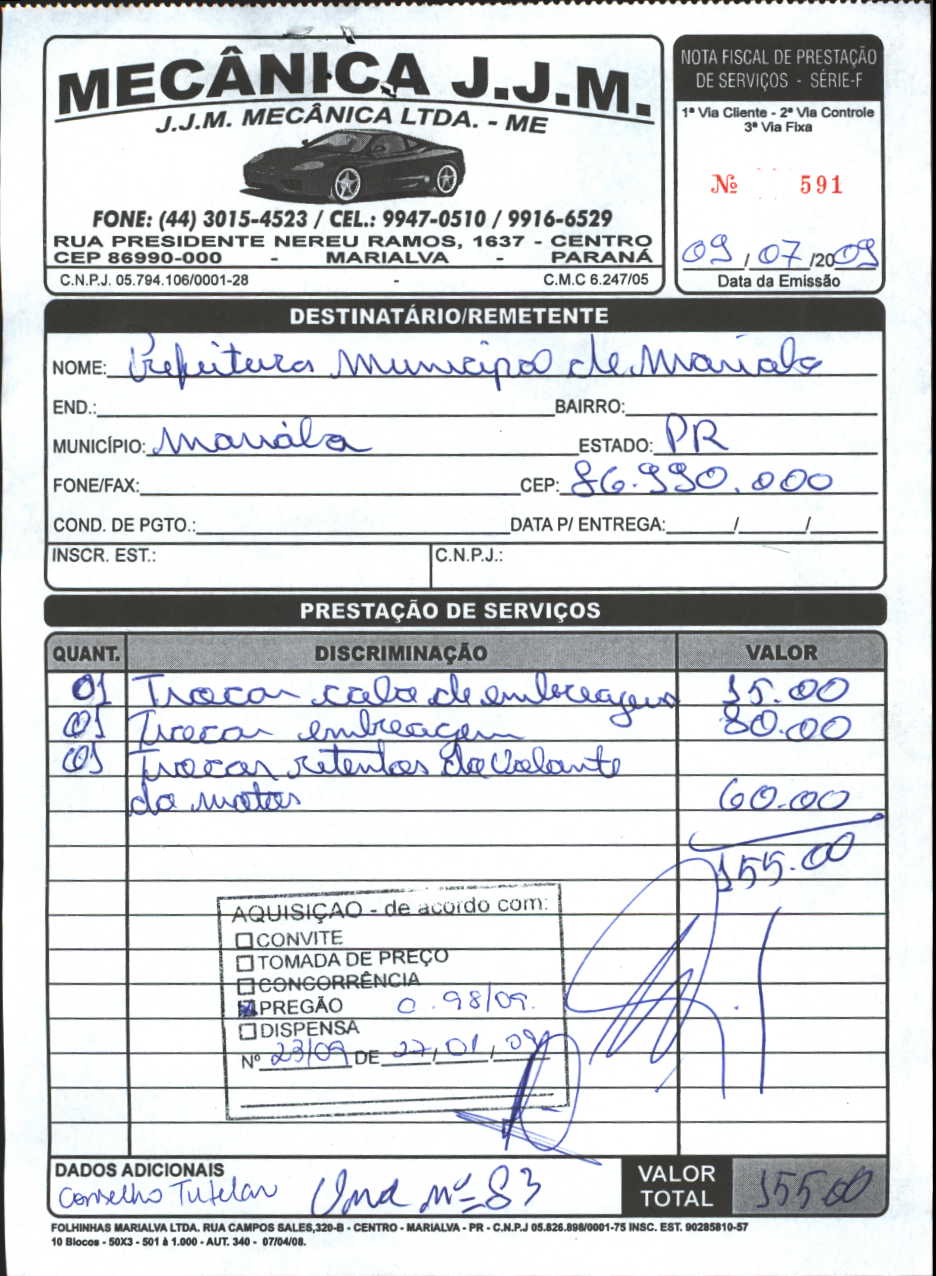 MECÂNICA J.J.M.
J.J.M. MECÂNICA LTDA. - ME
FONE: (44) 3015-4523 / CEL.: 9947-0510 / 9916-6529
RUA PRESIDENTE NEREU RAMOS, 1637 - CENTRO
CEP 86990-000 - MARIALVA - PARANÁ
C.N.P.J. 05.794.106/0001-28 - C.M.C 6.247/05
NOTA FISCAL DE PRESTAÇÃO
DE SERVIÇOS - SÉRIE-F
1ª Via Cliente - 2ª Via Controle
3ª Via Fixa
Nº 591
09/07/2009
Data da Emissão
DESTINATÁRIO/REMETENTE
NOME: Prefeitura Municipal de Marialva
END.: BAIRRO:
MUNICÍPIO: Marialva ESTADO: PR
FONE/FAX: CEP: 86.990.000
COND. DE PGTO.: DATA P/ ENTREGA: / /
INSCR. EST.: C.N.P.J.:
PRESTAÇÃO DE SERVIÇOS
QUANT. DISCRIMINAÇÃO VALOR
01 Trocar cabo de embreagem 15.00
01 Trocar embreagem 80.00
01 Trocar retentor do volante
do motor 60.00
155.00
AQUISIÇÃO - de acordo com:
CONVITE
TOMADA DE PREÇO
CONCORRÊNCIA
PREGÃO 0.98/09.
DISPENSA
Nº 23/09 DE 27/01/09
DADOS ADICIONAIS
Conselho Tutelar Uno nº 83
VALOR TOTAL 155.00
FOLHINHAS MARIALVA LTDA. RUA CAMPOS SALES,320-B - CENTRO - MARIALVA - PR - C.N.P.J 05.826.898/0001-75 INSC. EST. 90285810-57
10 Blocos - 50X3 - 501 à 1.000 - AUT. 340 - 07/04/08.